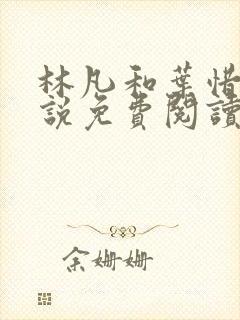 林凡和葉惜
說免費閱讀
余姍姍